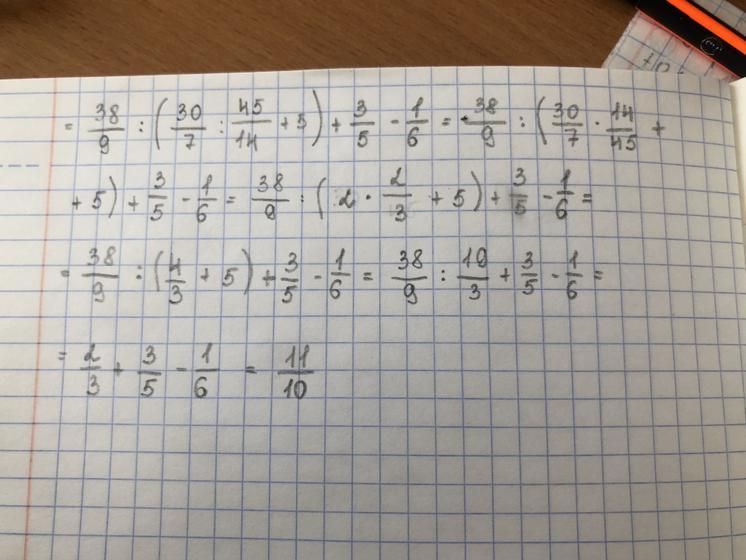 = 38/9 : (30/7 : 45/14 + 5) + 3/5 - 1/6 = 38/9 : (30/7 · 14/45 +
+ 5) + 3/5 - 1/6 = 38/9 : (2 · 2/3 + 5) + 3/5 - 1/6 =
= 38/9 : (4/3 + 5) + 3/5 - 1/6 = 38/9 : 19/3 + 3/5 - 1/6 =
= 2/3 + 3/5 - 1/6 = 11/10